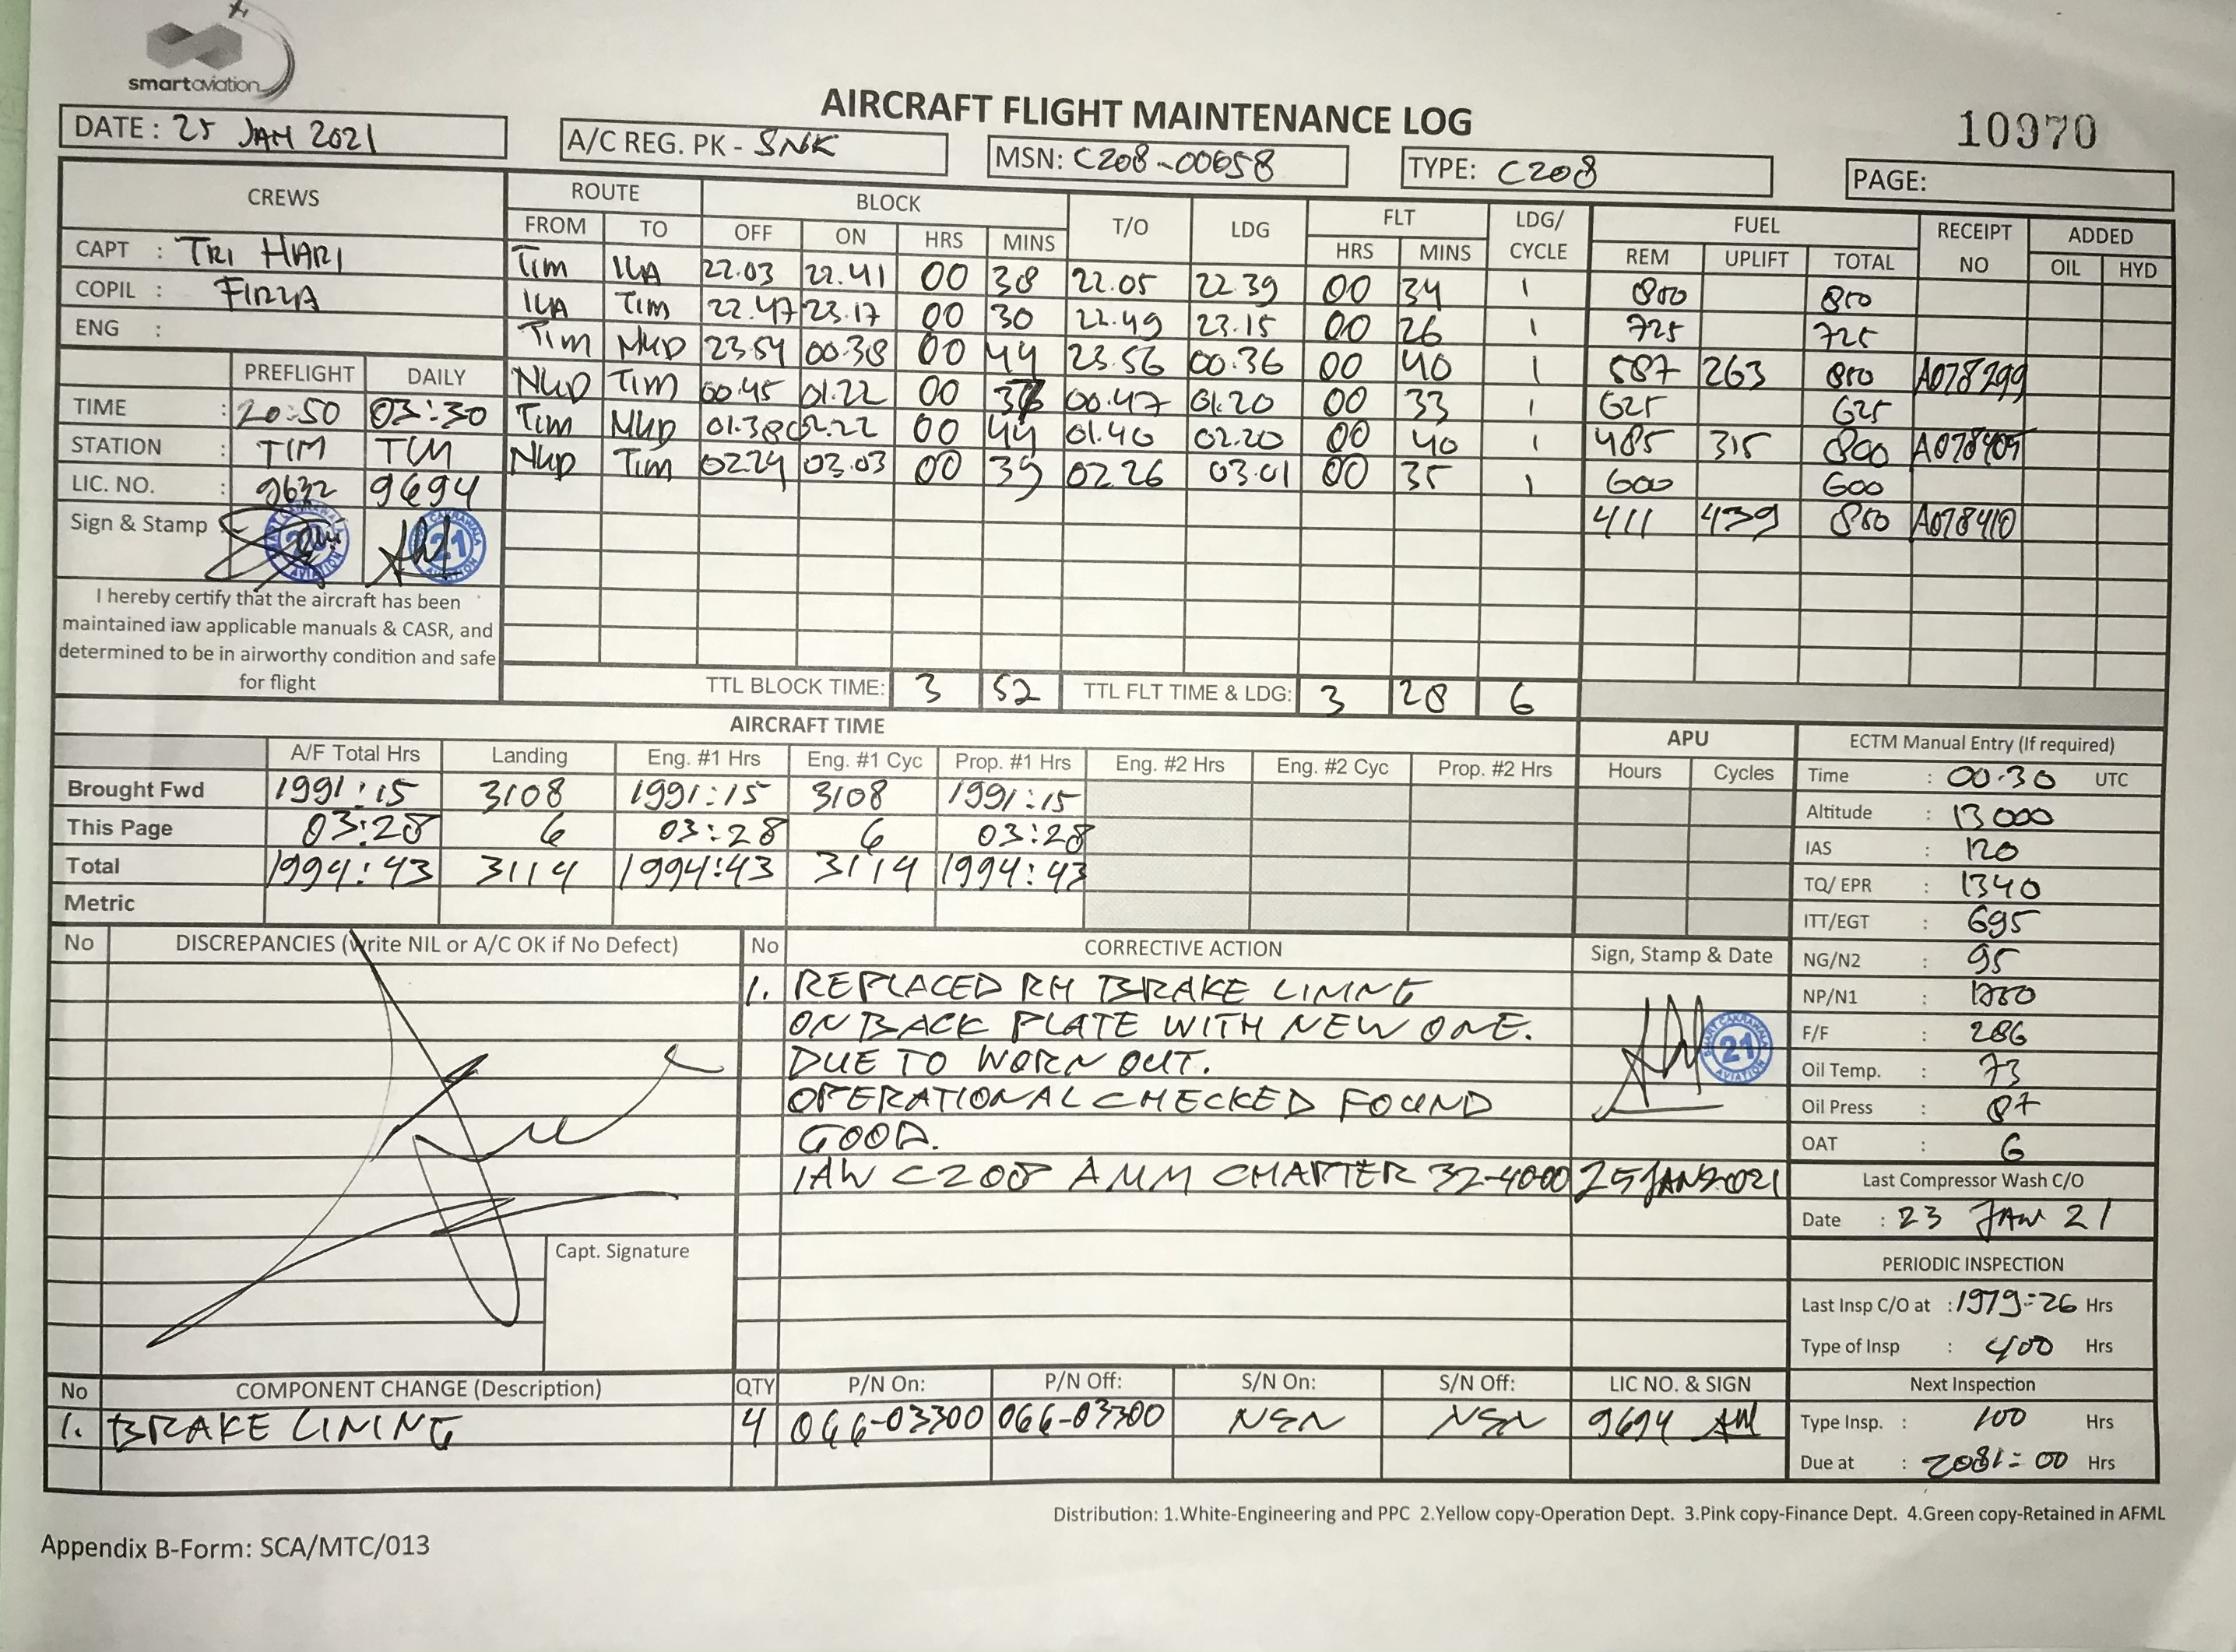 smartaviation
AIRCRAFT FLIGHT MAINTENANCE LOG
10970
DATE : 25 JAN 2021
A/C REG. PK - SNK
MSN: C208-00658
TYPE: C208
PAGE:
CREWS
CAPT : TRI HARI
COPIL :
ENG :
PREFLIGHT DAILY
TIME : 20:50 03:30
STATION : TIM TIM
LIC. NO. : 9632 9694
Sign & Stamp
21
I hereby certify that the aircraft has been
maintained iaw applicable manuals & CASR, and
determined to be in airworthy condition and safe
for flight
ROUTE BLOCK T/O LDG FLT LDG/ CYCLE FUEL RECEIPT NO ADDED
FROM TO OFF ON HRS MINS HRS MINS REM UPLIFT TOTAL OIL HYD
Tim ILA 22.03 22.41 00 38 22.05 22.39 00 34 1 850 850
ILA Tim 22.47 23.17 00 30 22.49 23.15 00 26 1 725 725
Tim NUD 23.54 00.38 00 44 23.56 00.36 00 40 1 587 263 850 A078299
NUD TIM 00.45 01.22 00 37 00.47 01.20 00 33 1 625 625
Tim NUD 01.38 02.22 00 44 01.40 02.20 00 40 1 485 315 800 A078409
NUD Tim 02.24 03.03 00 39 02.26 03.01 00 35 1 600 600
411 439 850 A078410
TTL BLOCK TIME: 3 52 TTL FLT TIME & LDG: 3 28 6
AIRCRAFT TIME
A/F Total Hrs Landing Eng. #1 Hrs Eng. #1 Cyc Prop. #1 Hrs Eng. #2 Hrs Eng. #2 Cyc Prop. #2 Hrs
Brought Fwd 1991:15 3108 1991:15 3108 1991:15
This Page 03:28 6 03:28 6 03:28
Total 1994:43 3114 1994:43 3114 1994:43
Metric
APU
Hours Cycles
ECTM Manual Entry (If required)
Time : 00.30 UTC
Altitude : 13000
IAS : 120
TQ/ EPR : 1340
ITT/EGT : 695
NG/N2 : 95
NP/N1 :
F/F : 286
Oil Temp. : 73
Oil Press : 87
OAT : 6
Last Compressor Wash C/O
Date : 23 JAN 21
PERIODIC INSPECTION
Last Insp C/O at : 1979:26 Hrs
Type of Insp : 400 Hrs
Next Inspection
Type Insp. : 100 Hrs
Due at : 2081:00 Hrs
No DISCREPANCIES (write NIL or A/C OK if No Defect)
Capt. Signature
No CORRECTIVE ACTION Sign, Stamp & Date
1. REPLACED RH BRAKE LINING
ON BACK PLATE WITH NEW ONE.
DUE TO WORN OUT.
OPERATIONAL CHECKED FOUND
GOOD.
IAW C208 AMM CHAPTER 32-4000 25 JAN 2021
SMART CAKRAWALA AVIATION 21
No COMPONENT CHANGE (Description) QTY P/N On: P/N Off: S/N On: S/N Off: LIC NO. & SIGN
1. BRAKE LINING 4 066-03300 066-03300 NSN NSN 9694
Distribution: 1.White-Engineering and PPC 2.Yellow copy-Operation Dept. 3.Pink copy-Finance Dept. 4.Green copy-Retained in AFML
Appendix B-Form: SCA/MTC/013